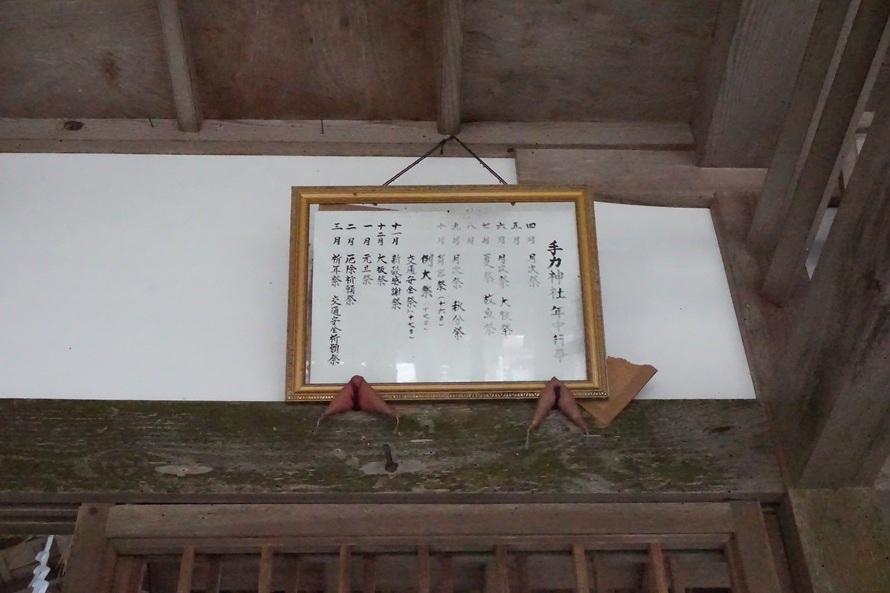 手力神社年中行事
四月 月次祭
五月
六月 月次祭 大祓祭
七月 夏祭 放魚祭
八月
九月 月次祭 秋分祭
十月 祭(十六日)
例大祭(十七日)
交通安全祭(十七日)
十一月 新穀感謝祭
十二月 大祓祭
一月 元旦祭
二月 厄除祈願祭
三月 祈年祭 交通安全祈願祭